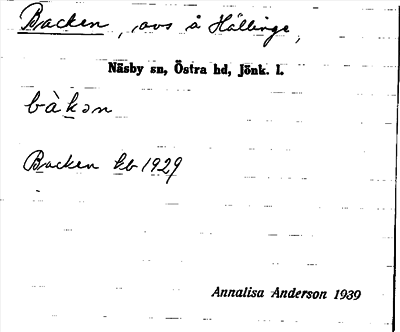 Backen, avs å Hällinge,
Näsby sn, Östra hd, Jönk. l.
bàkən
Backen kb 1929
Annalisa Anderson 1939